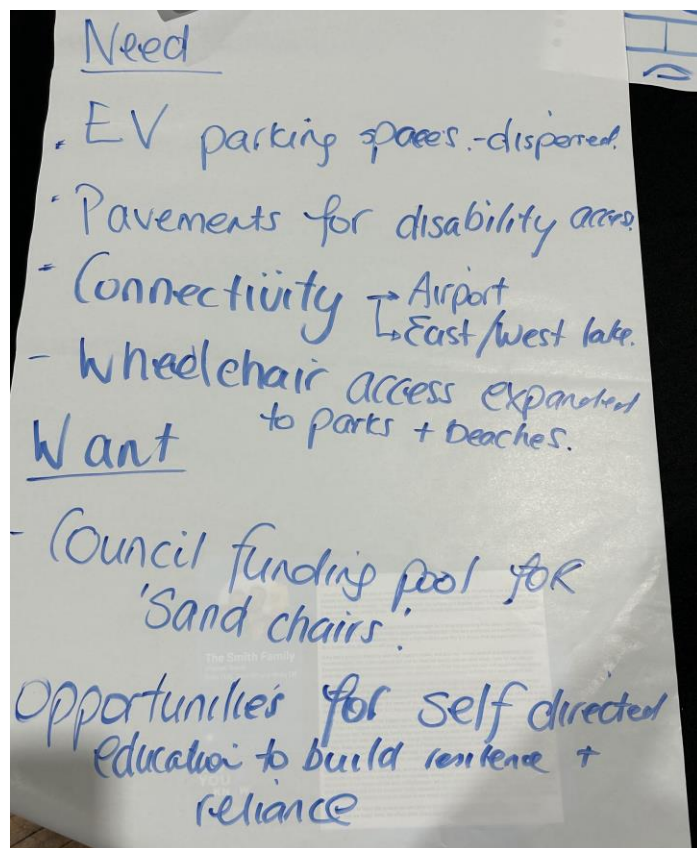 Need
. EV parking spaces.-dispersed.
· Pavements for disability access.
- Connectivity → Airport
↳ East/West lake.
- Wheelchair access expanded
to parks + beaches.
Want
- Council funding pool for
'Sand chairs'.
The Smith Family
Opportunities for self directed
education to build resilience +
reliance